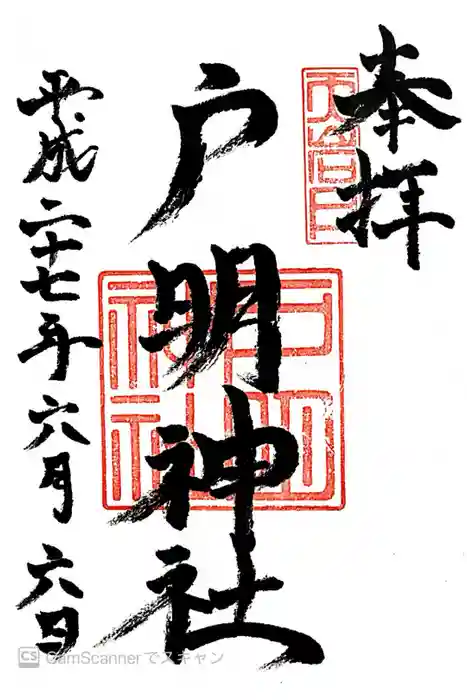 奉拝
戸明神社
平成二十七年六月六日
戸明神社
CS CamScannerでスキャン